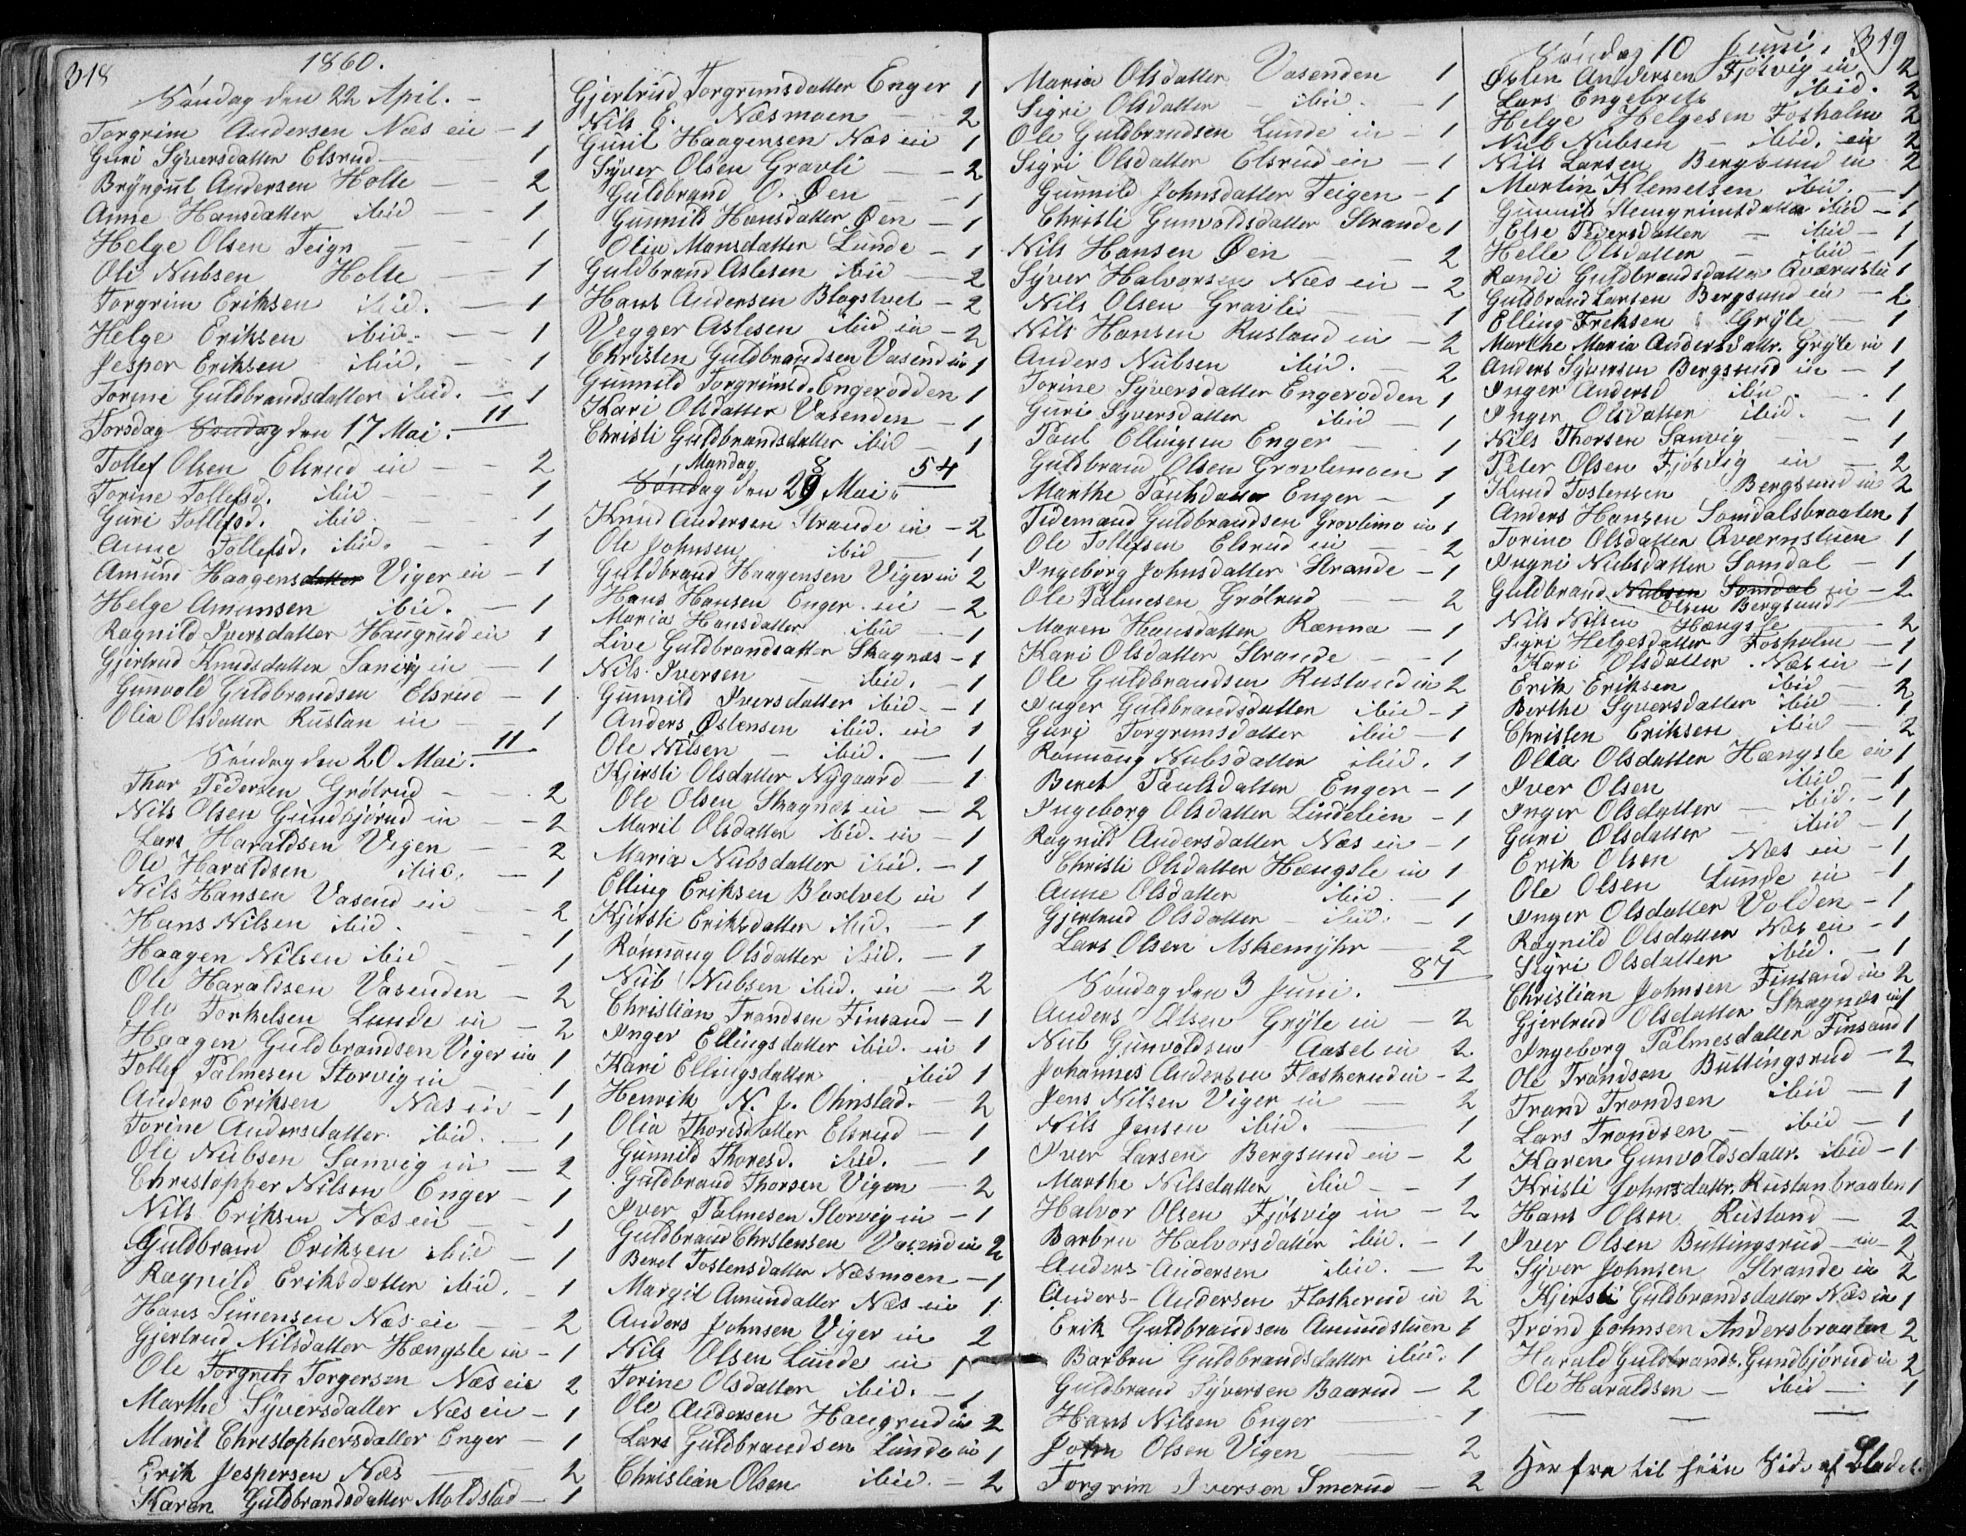 318
1860.
Søndag den 22 April. –
Torgrim Andersen Næs eie – 1
Guri Syversdatter Elsrud – 1
Bryngul Andersen Holte – 2
Anne Hansdatter ibid – 1
Helge Olsen Teign – 1
Ole Nubsen Holte – 1
Torgrim Eriksen ibid. – 1
Helge Eriksen ibid. – 1
Jesper Eriksen ibid. – 1
Torine Guldbrandsdatter ibid. – 1
11
Torsdag Søndag den 17 Mai.
Tollef Olsen Elsrud ei – 2
Torine Tollefsd. ibid – 1
Guri Tollefsd. ibid. – 1
Anne Tollefsd. ibid. – 1
Amund Haagensdatter Viger ei – 1
Helge Amunsen ibid. – 1
Ragnild Iversdatter Haugrud ei 1
Gjertrud Knudsdatter Sanvig ei – 1
Gunvold Guldbrandsen Elsrud – 1
Olia Olsdatter Rustan ei – 1
11
Søndag den 20 Mai.
Thor Pedersen Grølrud – 2
Nils Olsen Gundbjørud ei – 2
Lars Haraldsen Vigen – 2
Ole Haraldsen ibid. – 1
Nils Hansen Vasend ei – 2
Hans Nilsen ibid. – 1
Haagen Nilsen ibid – 1
Ole Haraldsen Vasenden – 2
Ole Torkelsen Lunde ei – 2
Haagen Guldbrandsen Viger ei 1
Tollef Palmesen Storvig ei – 1
Anders Eriksen Næs ei – 1
Torine Andersdatter ibid. – 1
Ole Nubsen Sanvig ei – 2
Christopher Nilsen Enger – 1
Nils Eriksen Næs ei – 1
Guldbrand Eriksen ibid – 1
Ragnild Eriksdatter ibid. – 1
Hans Simensen Næs ei – 2
Gjertrud Nilsdatter Hængsle ei – 1
Ole Torgrels Torgersen Næs eie 2
Marthe Syversdatter Næs ei – 1
Marit Christophersdatter Enger – 1
Erik Jespersen Næs – 2
Karen Guldbrandsdatter Moldstad – 1
Gjertrud Torgrimsdatter Enger 1
Nils E. Næsmoen – 2
Gunil Haagensen Næs ei 1
Syver Olsen Gravli – 2
Guldbrand O. Øen – 1
Gunnild Hansdatter Øen – 1
Olia Monsdatter Lunde – 1
Guldbrand Aslesen ibid – 2
Hans Andersen Blagstvet – 2
Vegger Aslesen ibid ei – 2
Christen Guldbrandsen Vasend ei 1
Gunnild Torgrimsd. Engerodden 1
Kari Olsdatter Vasenden – 1
Christi Guldbrandsdatter ibid – 1
54
Mandag 8
Søndag den 29 Mai.
Knud Andersen Strande ei – 2
Ole Johnsen ibid – 1
Guldbrand Haagensen Viger ei 2
Hans Hansen Enger ei – 2
Maria Hansdatter ibid – 1
Live Guldbrandsattr Skagnæs – 1
Nils Iversen – ibid. – 1
Gunnild Iversdatter ibid – 1
Anders Østensen ibid. ei 1
Ole Nilsen – ibid. – 1
Kjersti Olsdatter Nygaard – 1
Ole Olsen Skagnæs ei – 2
Marit Olsdatter ibid. ei – 1
Maria Nubsdatter ibid. – 1
Elling Eriksen Bloxtvet ei 1
Kjersti Eriksdatter ibid. – 1
Ronnoug Olsdatter ibid. – 1
Nub Nubsen ibid. ei – 2
Christian Trondsen Finsand – 1
Inger Ellingsdatter ibid. ei 1
Kari Ellingsdatter ibid 1
Henrik N. J. Ohnstad. – 2
Olia Thoresdatter Elsrud – 1
Gunnild Thoresd. ibid. – 1
Guldbrand Thorsen Vigen – 2
Iver Palmesen Storvig ei – 1
Guldbrand Christensen Vasend ei 2
Beret Tostensdatter Næsmoen – 1
Margit Amundatter Næs ei 1
Anders Johnsen Viger ei 2
Nils Olsen Lunde ei 1
Torine Olsdatter ibid. – 1
Ole Andersen Haugrud ei 2
Lars Guldbrandsen Lunde ei 1
Christian Olsen ibid. – 2
Maria Olsdatter Vasenden 1
Sigri Olsdatter – ibid. – 1
Ole Guldbrandsen Lunde ei – 1
Sigri Olsdatter Elsrud ei – 1
Gunnild Johnsdatter Teigen – 1
Christi Gunvoldsdatter Strande 1
Nils Hansen Øen – 2
Syver Halvorsen Næs ei – 2
Nils Olsen Gravli – 1
Nils Hansen Rustand ei – 2
Anders Nubsen ibid. – 2
Torine Syversdatter Engerodden 1
Guri Syversdatter ibid – 1
Paul Ellingsen Enger – 1
Guldbrand Olsen Gravlemoen 1
Marthe Paulsdatter Enger – 1
Tidemand Guldbrandsen Gravlimo ei 1
Ole Tollefsen Elsrud ei – 2
Ingeborg Johnsdatter Strande – 1
Ole Palmesen Grølrud – 2
Maren Hansdatter Rænna – 1
Kari Olsdatter Strande – 1
Ole Guldbrandsen Rustand ei 2
Inger Guldbrandsdatter ibid – 1
Guri Torgrimsdatter ibid – 1
Ronnoug Nubsdatter ibid. 1
Beret Paulsdatter Enger – 1
Ingeborg Olsdatter Lindelien – 1
Ragnild Andersdatter Næs ei – 1
Christi Olsdatter Hængsle ei 1
Anne Olsdatter ibid. – 1
Gjertrud Olsdatter – ibid. – 1
Lars Olsen Askemyhr – 2
87
Søndag den 3 Juni.
Anders Olsen Gryte ei – 2
Nub Gunvoldsen Aasel ei 2
Johannes Andersen Flaskerud ei – 2
Jens Nilsen Viger ei – 2
Nils Jensen ibid. – 1
Iver Larsen Bergsund ei – 2
Marthe Nilsdatter ibid – 1
Halvor Olsen Fjøsvig ei – 2
Barbru Halvorsdatter ibid. – 1
Anders Andersen ibid. – 2
Anders Andersen Flaskerud ei 2
Erik Guldbrandsen Amundstuen 1
Barbru Guldbrandsdatter ibid. 1
Guldbrand Syversen Baarud – 2
Hans Nilsen Enger – 1
John Olsen Vigen – 2
Torgrim Iversen Smerud – 2
319
Søndag 10 Juni.
Østen Andersen Fjøsvig ei 2
Lars Engebrits ibid. 2
Helge Helgesen Fosholm 2
Nub Nubsen – ibid. ei 2
Nils Larsen Bergsund ei 2
Martin Klemetsen ibid. – 1
Gunnild Stengrimsdatter ibid – 1
Else Pedersdatter – ibid – 1
Helle Olsdatter – ibid – 1
Randi Guldbrandsdatter Qværnstu 1
Guldbrand Larsen Bergsund ei – 2
Elling Eriksen Gryte – 1
Marthe Maria Andersdattr. Gryte ei 1
Anders Syversen Bergsund ei – 1
Inger Andersd ibid. – 1
Inger Olsdatter ibid. – 1
Nils Thorsen Sanvig – 1
Peter Olsen Fjøsvig ei – 2
Knud Tostensen Bergsund ei 2
Anders Hansen Somdalsbraaten 1
Torine Olsdatter Qværnstuen 1
Ingri Nubsdatter Somdal – 1
Guldbrand Nubsen Somdal ei – 2
Olsen Bergsund
Nils Nilsen Hængsle – 2
Sigri Helgesdatter Fosholm – 1
Kari Olsdatter Næs ei – 1
Erik Eriksen ibid – 2
Berthe Syversdatter ibid – 1
Christen Eriksen ibid – 2
Olia Olsdatter Hængsle ei 1
Iver Olsen ibid – 1
Inger Olsdatter – ibid. – 1
Guri Olsdatter – ibid – 1
Erik Olsen Næs ei – 1
Ole Olsen Lunde ei – 1
Inger Olsdatter Volden – 1
Ragnild Olsdatter Næs ei – 1
Sigri Olsdatter ibid. – 1
Christian Johnsen Finsand ei 2
Gjertrud Olsdatter Skagnæs ei 1
Ingeborg Palmesdatter Finsand 1
Ole Trondsen Buttingsrud – 2
Trand Trondsen ibid – 1
Lars Trondsen – ibid – 1
Karen Gunvoldsdattr. ibid – 1
Kristi Johnsdattr. Rustanbraaten 1
Hans Olsen Rustand – 2
Iver Olsen Buttingsrud ei – 2
Syver Johnsen Strande ei 2
Kjersti Guldbrandsdatter Næs ei 1
Trond Johnsen Andersbraaten 2
Harald Guldbrands. Gundbjørud ei 2
Ole Haraldsen – ibid – 1
Her fra til hiin Side af Bladet.